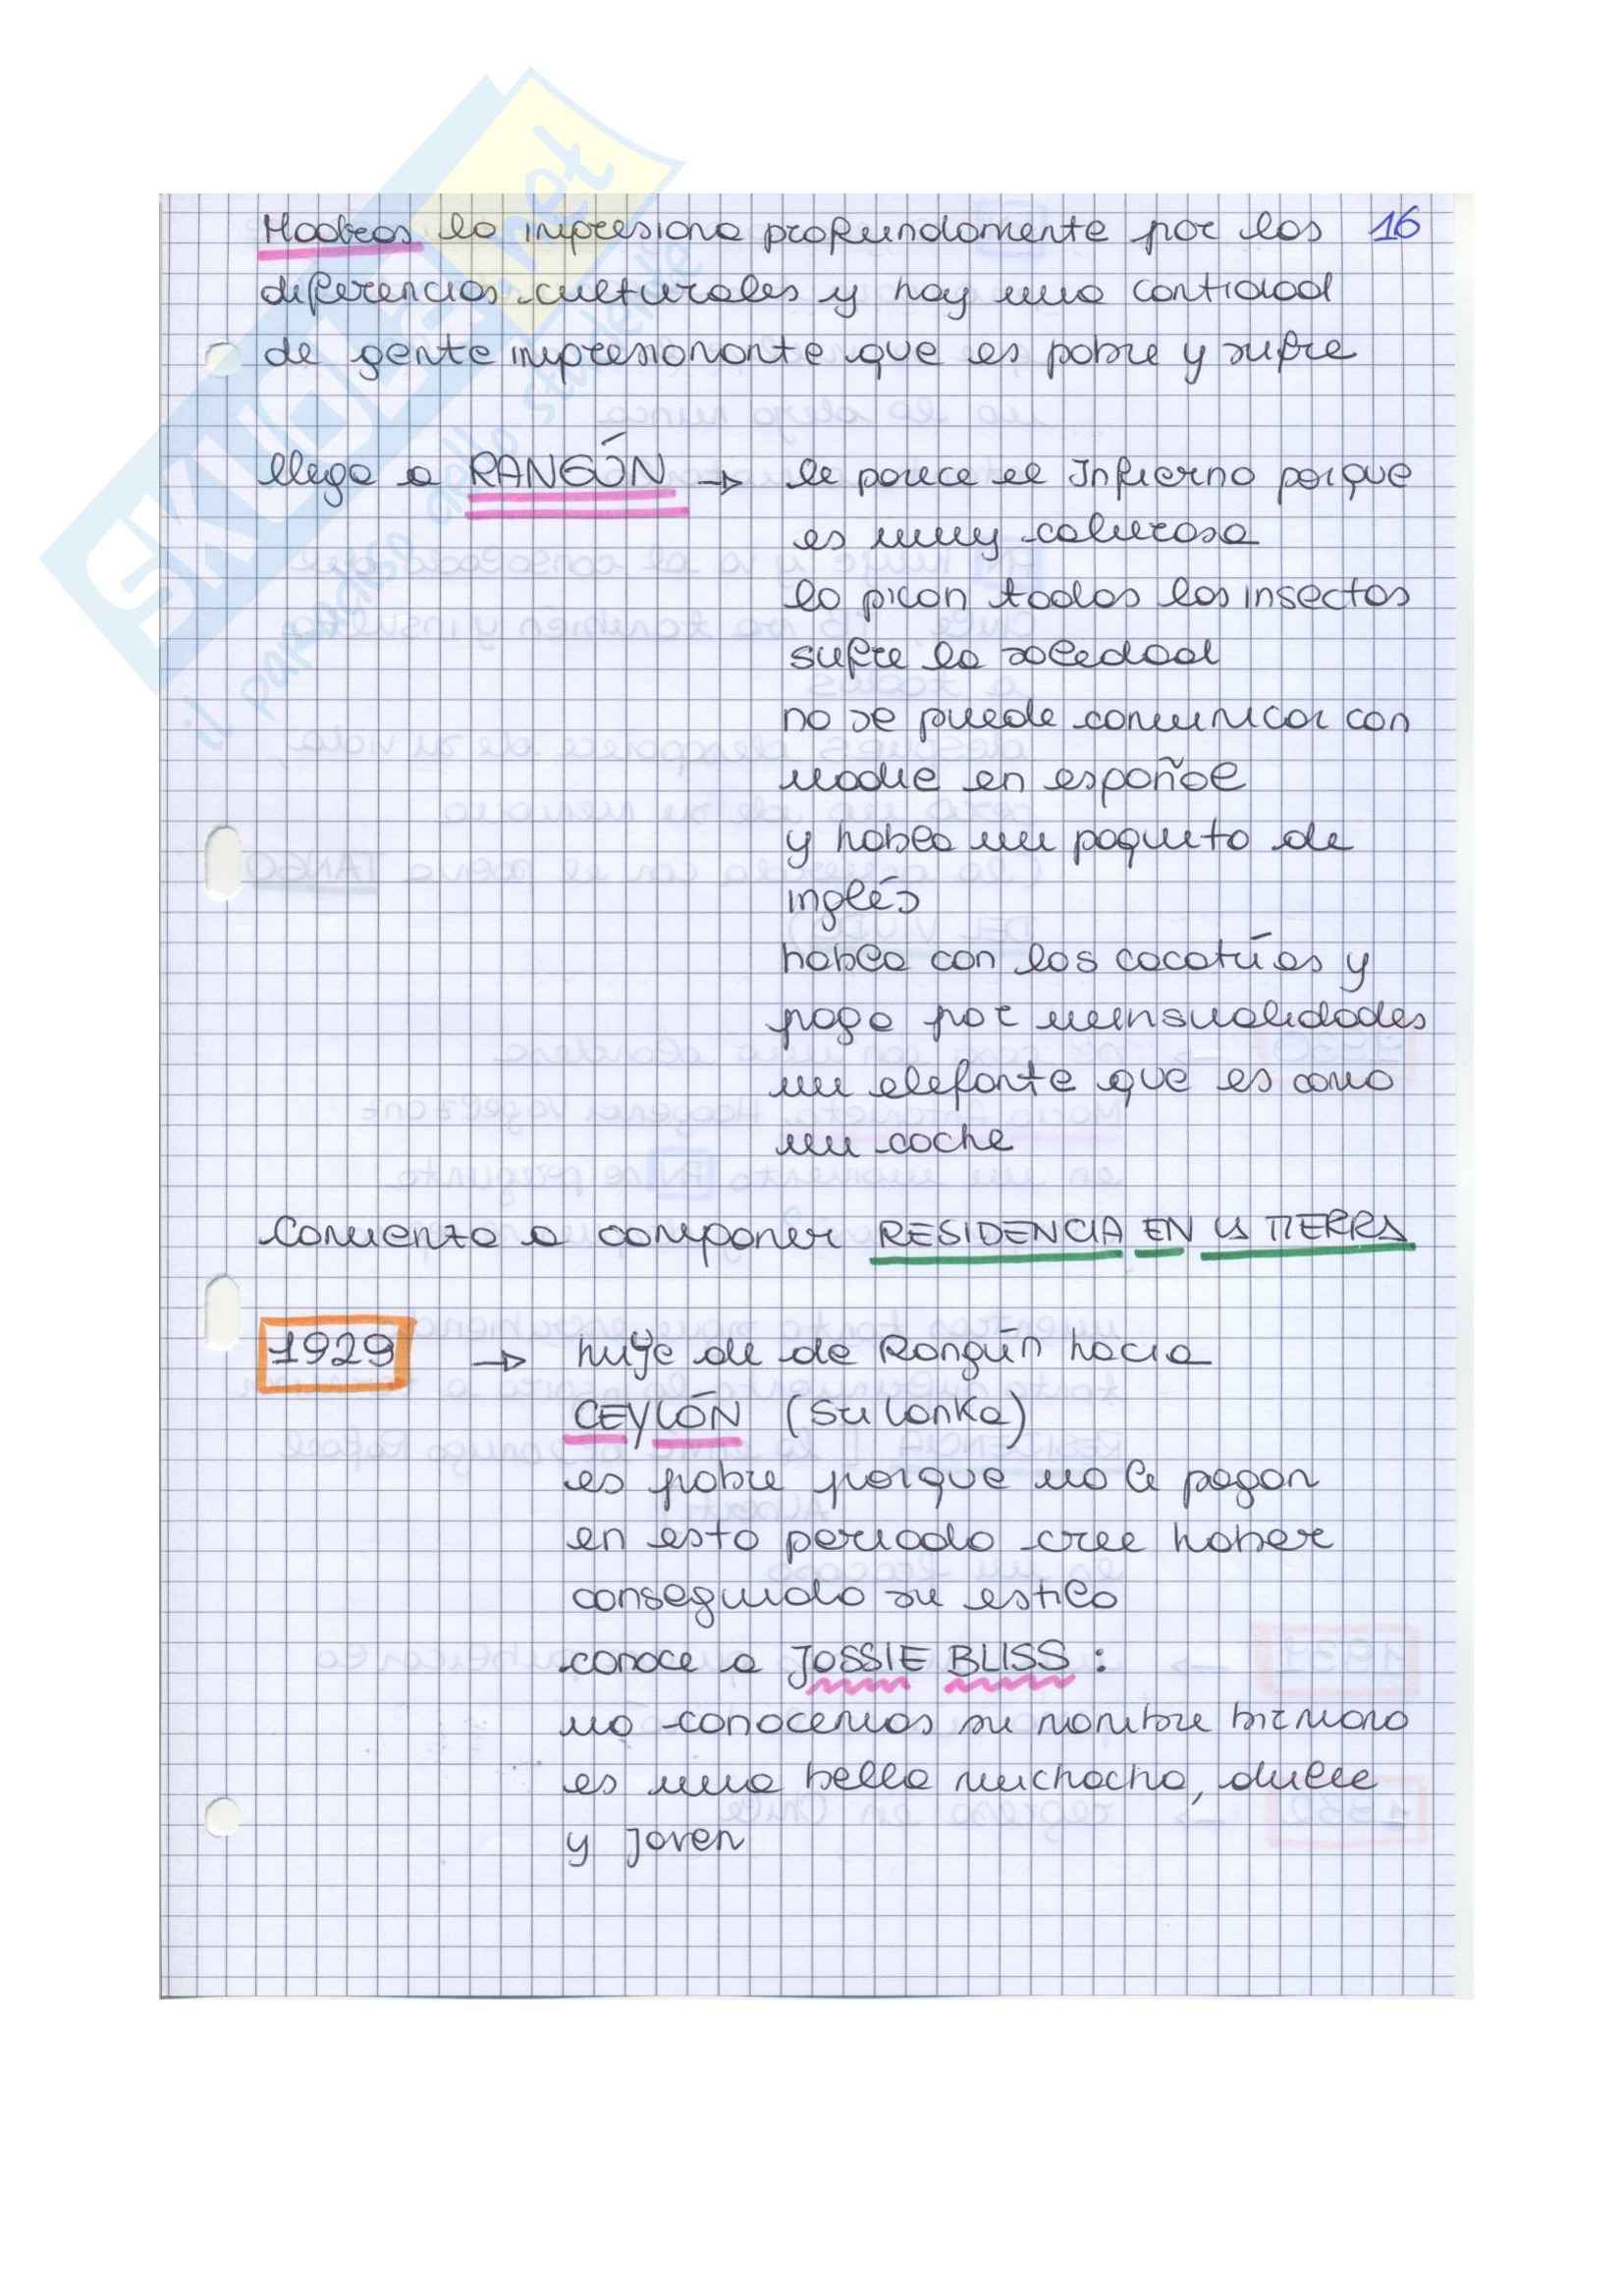 Madras lo impresiona profundamente por las 16
diferencias culturales y hay una cantidad
de gente impresionante que es pobre y sufre
llega a RANGÚN → le parece el Infierno porque
es muy calurosa
lo pican todos los insectos
sufre la soledad
no se puede comunicar con
nadie en español
y habla un poquito de
inglés
habla con las cacatúas y
paga por mensualidades
un elefante que es como
un coche
Comienza a componer RESIDENCIA EN LA TIERRA
1929 → huye de de Rangún hacia
CEYLÓN (Sri Lanka)
es pobre porque no le pagan
en esto periodo cree haber
conseguido su estilo
conoce a JOSSIE BLISS :
no conocemos su nombre birmano
es una bella muchacha, dulce
y joven
SKUOLA.net
il paradiso dello studente